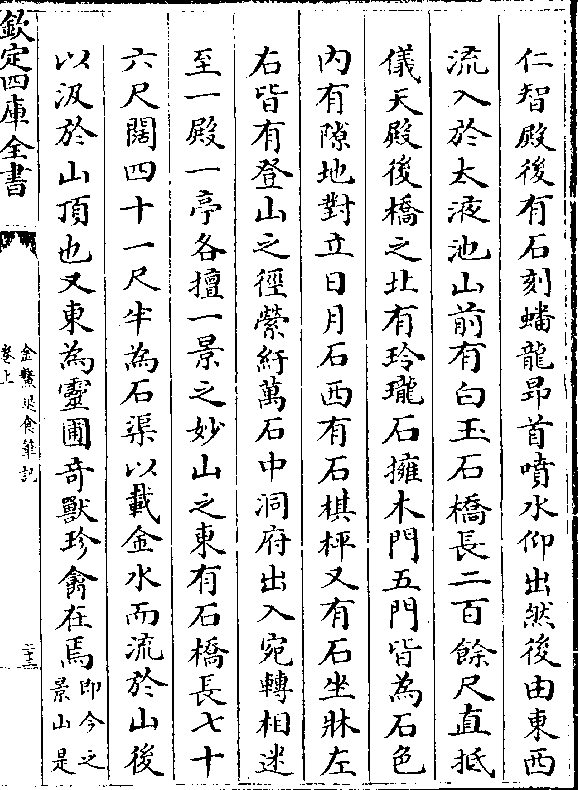 仁智殿後有石刻蟠龍昂首噴水仰出然後由東西
流入於太液池山前有白玉石橋長二百餘尺直抵
儀天殿後橋之北有玲瓏石擁木門五門皆為石色
内有隙地對立日月石西有石棋枰又有石坐牀左
右皆有登山之徑縈紆萬石中洞府出入宛轉相迷
至一殿一亭各擅一景之妙山之東有石橋長七十
六尺闊四十一尺半為石渠以載金水而流於山後
以汲於山頂也又東為靈圃奇獸珍禽在焉即今之
景山是
欽定四庫全書
金鰲退食筆記
卷上
二十三